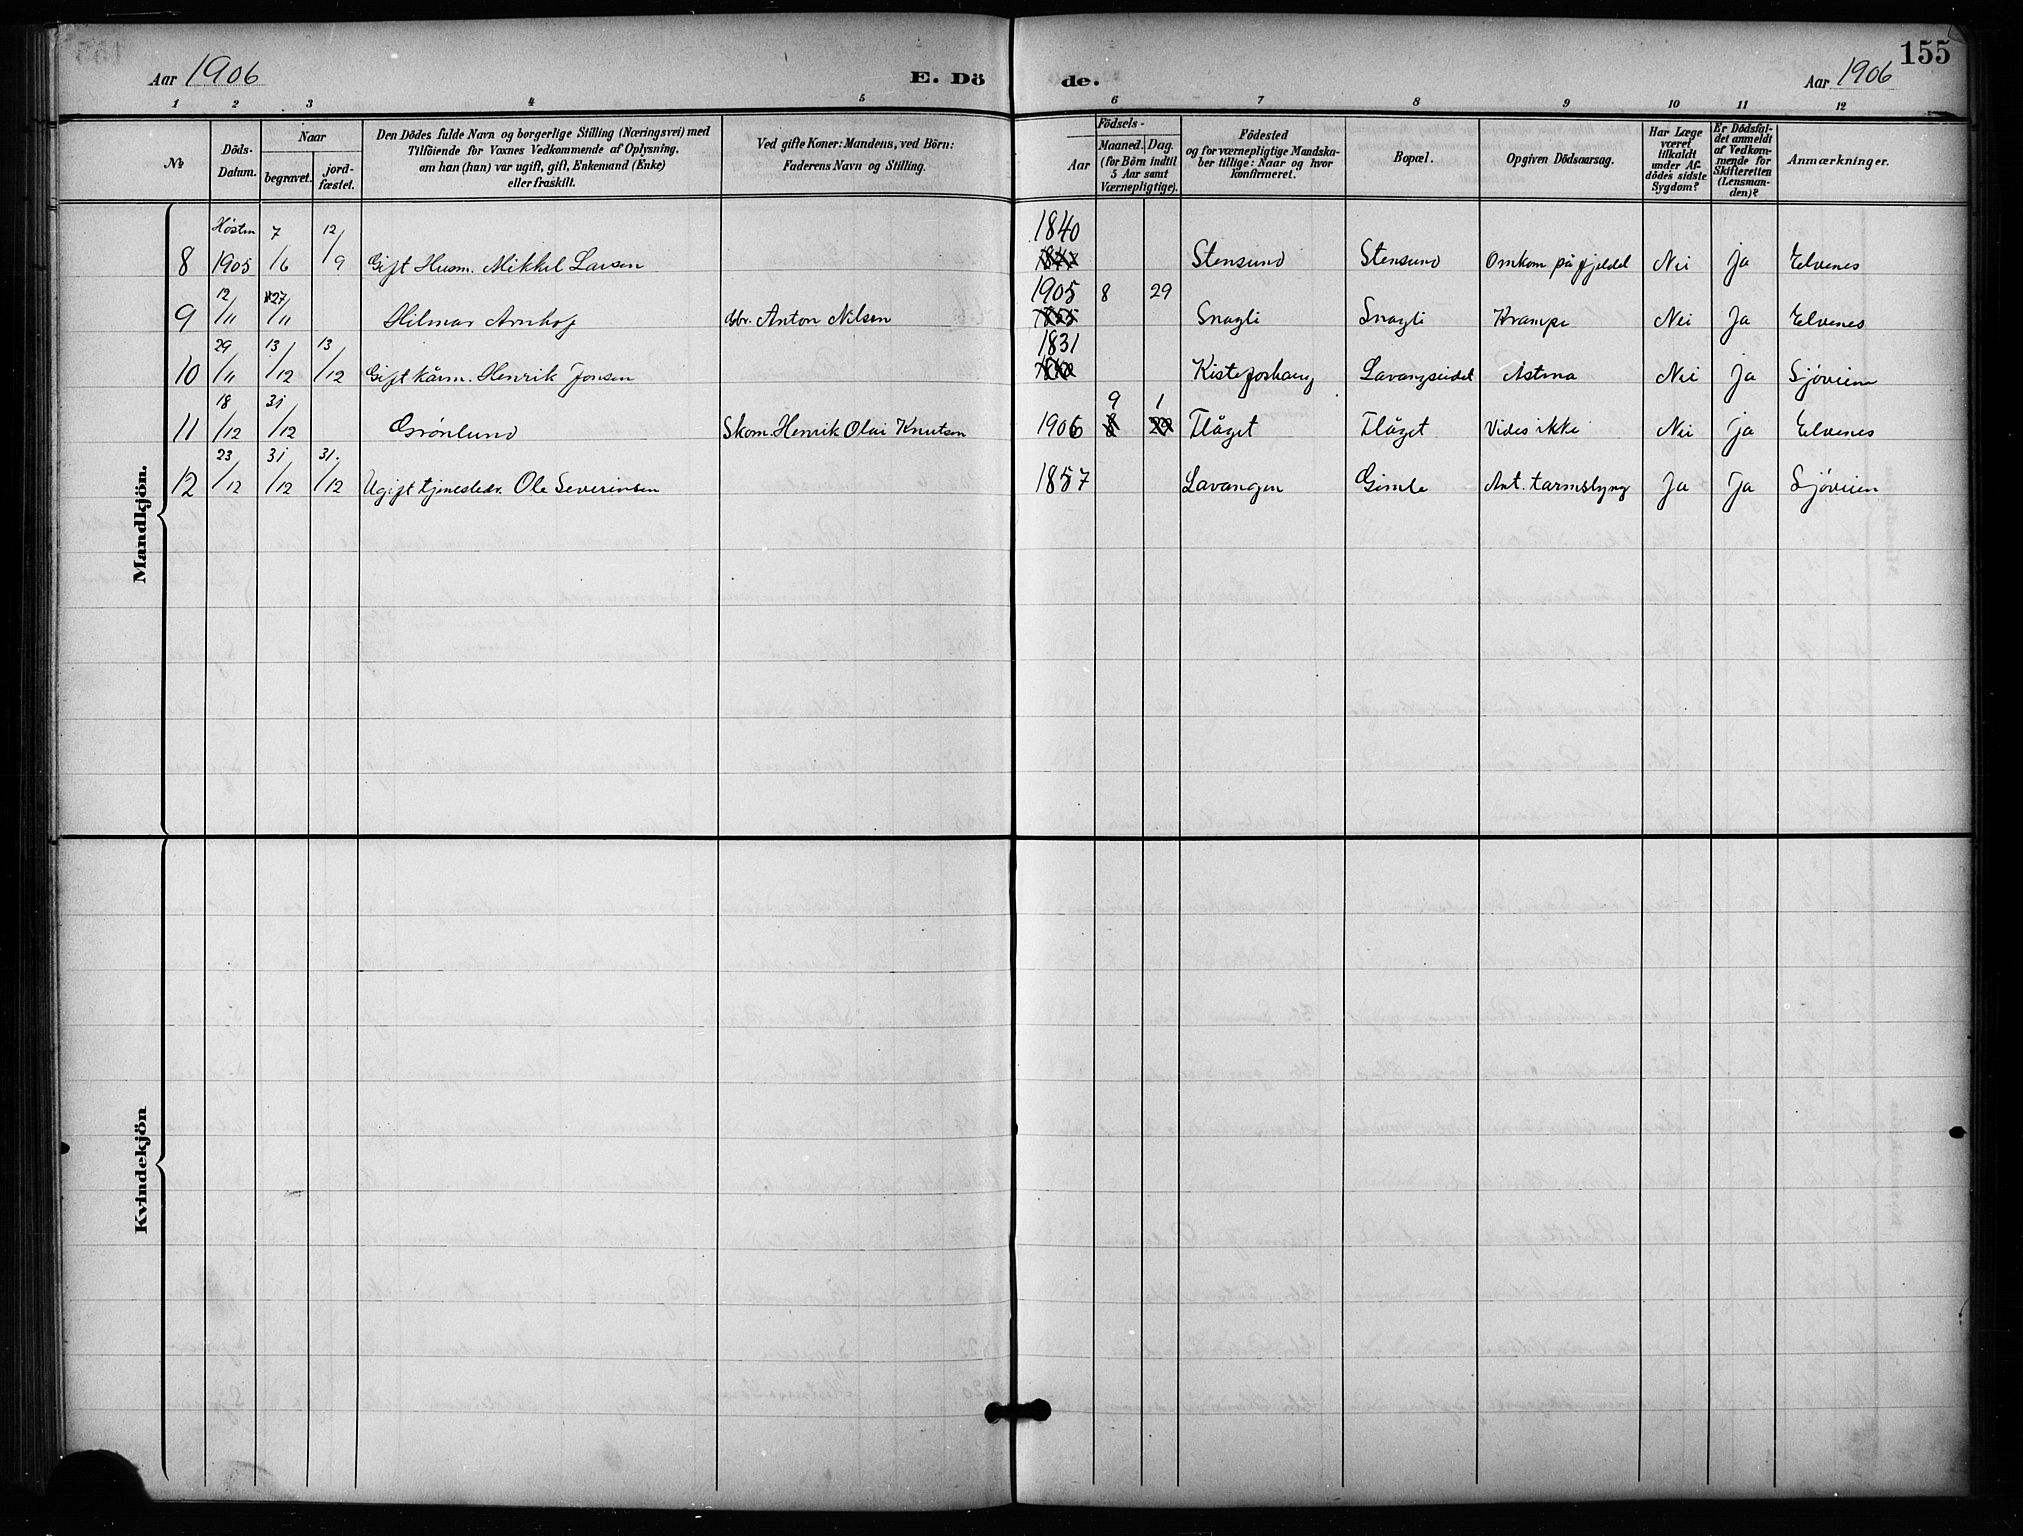 155
Aar 1906 E. Dö de. Aar 1906
1 2 3 4 5 6 7 8 9 10 11 12
No
Döds-Datum.
Naar
begravet.
jord-fæstet.
Den Dödes fulde Navn og borgerlige Stilling (Næringsvei) med
Tilföiende for Voxnes Vedkommende af Oplysning,
om han (hun) var ugift, gift, Enkemand (Enke)
eller fraskilt.
Ved gifte Koner: Mandens, ved Börn:
Faderens Navn og Stilling.
Födsels-
Aar
Maaned. Dag.
(for Börn indtil
5 Aar samt
Værnepligtige).
Födested
og for værnepligtige Mandska-
ber tillige: Naar og hvor
konfirmeret.
Bopæl.
Opgiven Dödsaarsag.
Har Læge
været
tilkaldt
under Af-
dödes sidste
Sygdom?
Er Dödsfal-
det anmeldt
af Vedkom-
mende for
Skifteretten
(Lensman-
den)?
Anmærkninger.
Mandkjön.
8 Høsten 1905 7/6 12/9 Gift Husm. Mikkel Larsen 1840 Stensund Stensund Omkom på fjeldet Nei Ja Elvenes
9 12/11 27/11 Hilmar Arnhof Gbr. Anton Nilsen 1905 8 29 Snagli Snagli Krampe Nei Ja Elvenes
10 29/11 13/12 13/12 Gift kårm. Henrik Jonsen 1831 Lavangseidet Astma Nei Ja Sjøveien
11 18/12 31/12 Grønlund Skom. Henrik Olai Knutsen 1906 9 1 Flåget Flåget Vides ikke Nei Ja Elvenes
12 23/12 31/12 31/12 Ugift tjenestedr. Ole Severinsen 1857 Lavangen Gimle Ant. tarmslyng Ja Ja Sjøveien
Kvindekjön